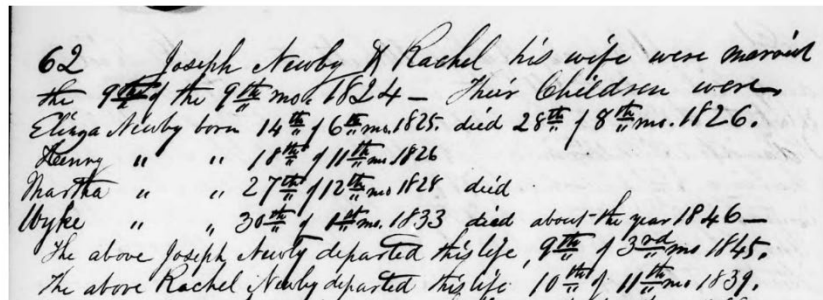 62 Joseph Newby & Rachel his wife were married
the 9th of the 9th mo. 1824 — Their Children were
Elinga Newby born 14th of 6th mo. 1825. died 28th of 8th mo. 1826.
Henry " " 18th of 11th mo 1826
Martha " " 27th of 12th mo 1828 died
Wyke " " 30th of 1st mo. 1833 died about the year 1846 —
The above Joseph Newby departed this life, 9th of 3rd mo 1845.
The above Rachel Newby departed this life 10th of 11th mo. 1839.